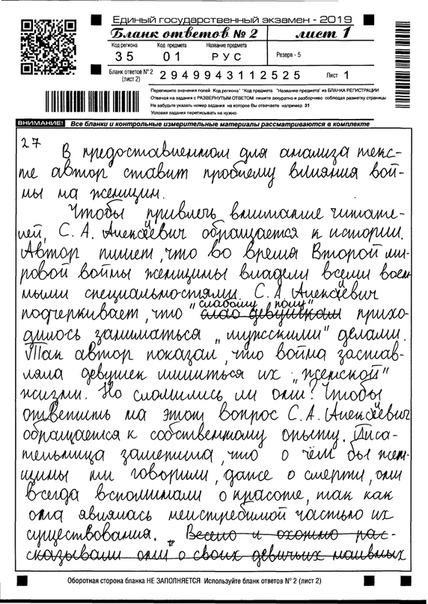 Единый государственный экзамен - 2019
Бланк ответов № 2 лист 1
Код региона Код предмета Название предмета
35 01 РУС Резерв - 5
Бланк ответов № 2 (лист 2) 2949943112525 Лист 1
Перепишите значения полей "Код региона", "Код предмета", "Название предмета" из БЛАНКА РЕГИСТРАЦИИ
Отвечая на задания с РАЗВЕРНУТЫМ ОТВЕТОМ пишите аккуратно и разборчиво, соблюдая разметку страницы
Не забудьте указать номер задания, на которое Вы отвечаете, например, 31
Условия задания переписывать не нужно
ВНИМАНИЕ! Все бланки и контрольные измерительные материалы рассматриваются в комплекте
27
В предоставленном для анализа текс-
те автор ставит проблему влияния вой-
ны на женщин.
Чтобы привлечь внимание читате-
лей, С. А. Алексиевич обращается к истории.
Автор пишет, что во время Второй ми-
ровой войны женщины владели всеми воен
ными специальностями. С. А. Алексиевич
подчеркивает, что "слабому полу" прихо-
дилось заниматься „мужскими" делами.
Так автор показал, что война застав-
ляла девушек лишиться их „женской"
жизни. Но сломились ли они? Чтобы
ответить на этот вопрос С. А. Алексиевич
обращается к собственному опыту. Писа-
тельница заметила, что о чём бы жен-
щины ни говорили, даже о смерти, они
всегда вспоминали о красоте, так как
она являлась неистребимой частью их
существования. „ Весело и охотно рас-
сказывали они о своих девичьих наивных
Оборотная сторона бланка НЕ ЗАПОЛНЯЕТСЯ Используйте бланк ответов № 2 (лист 2)